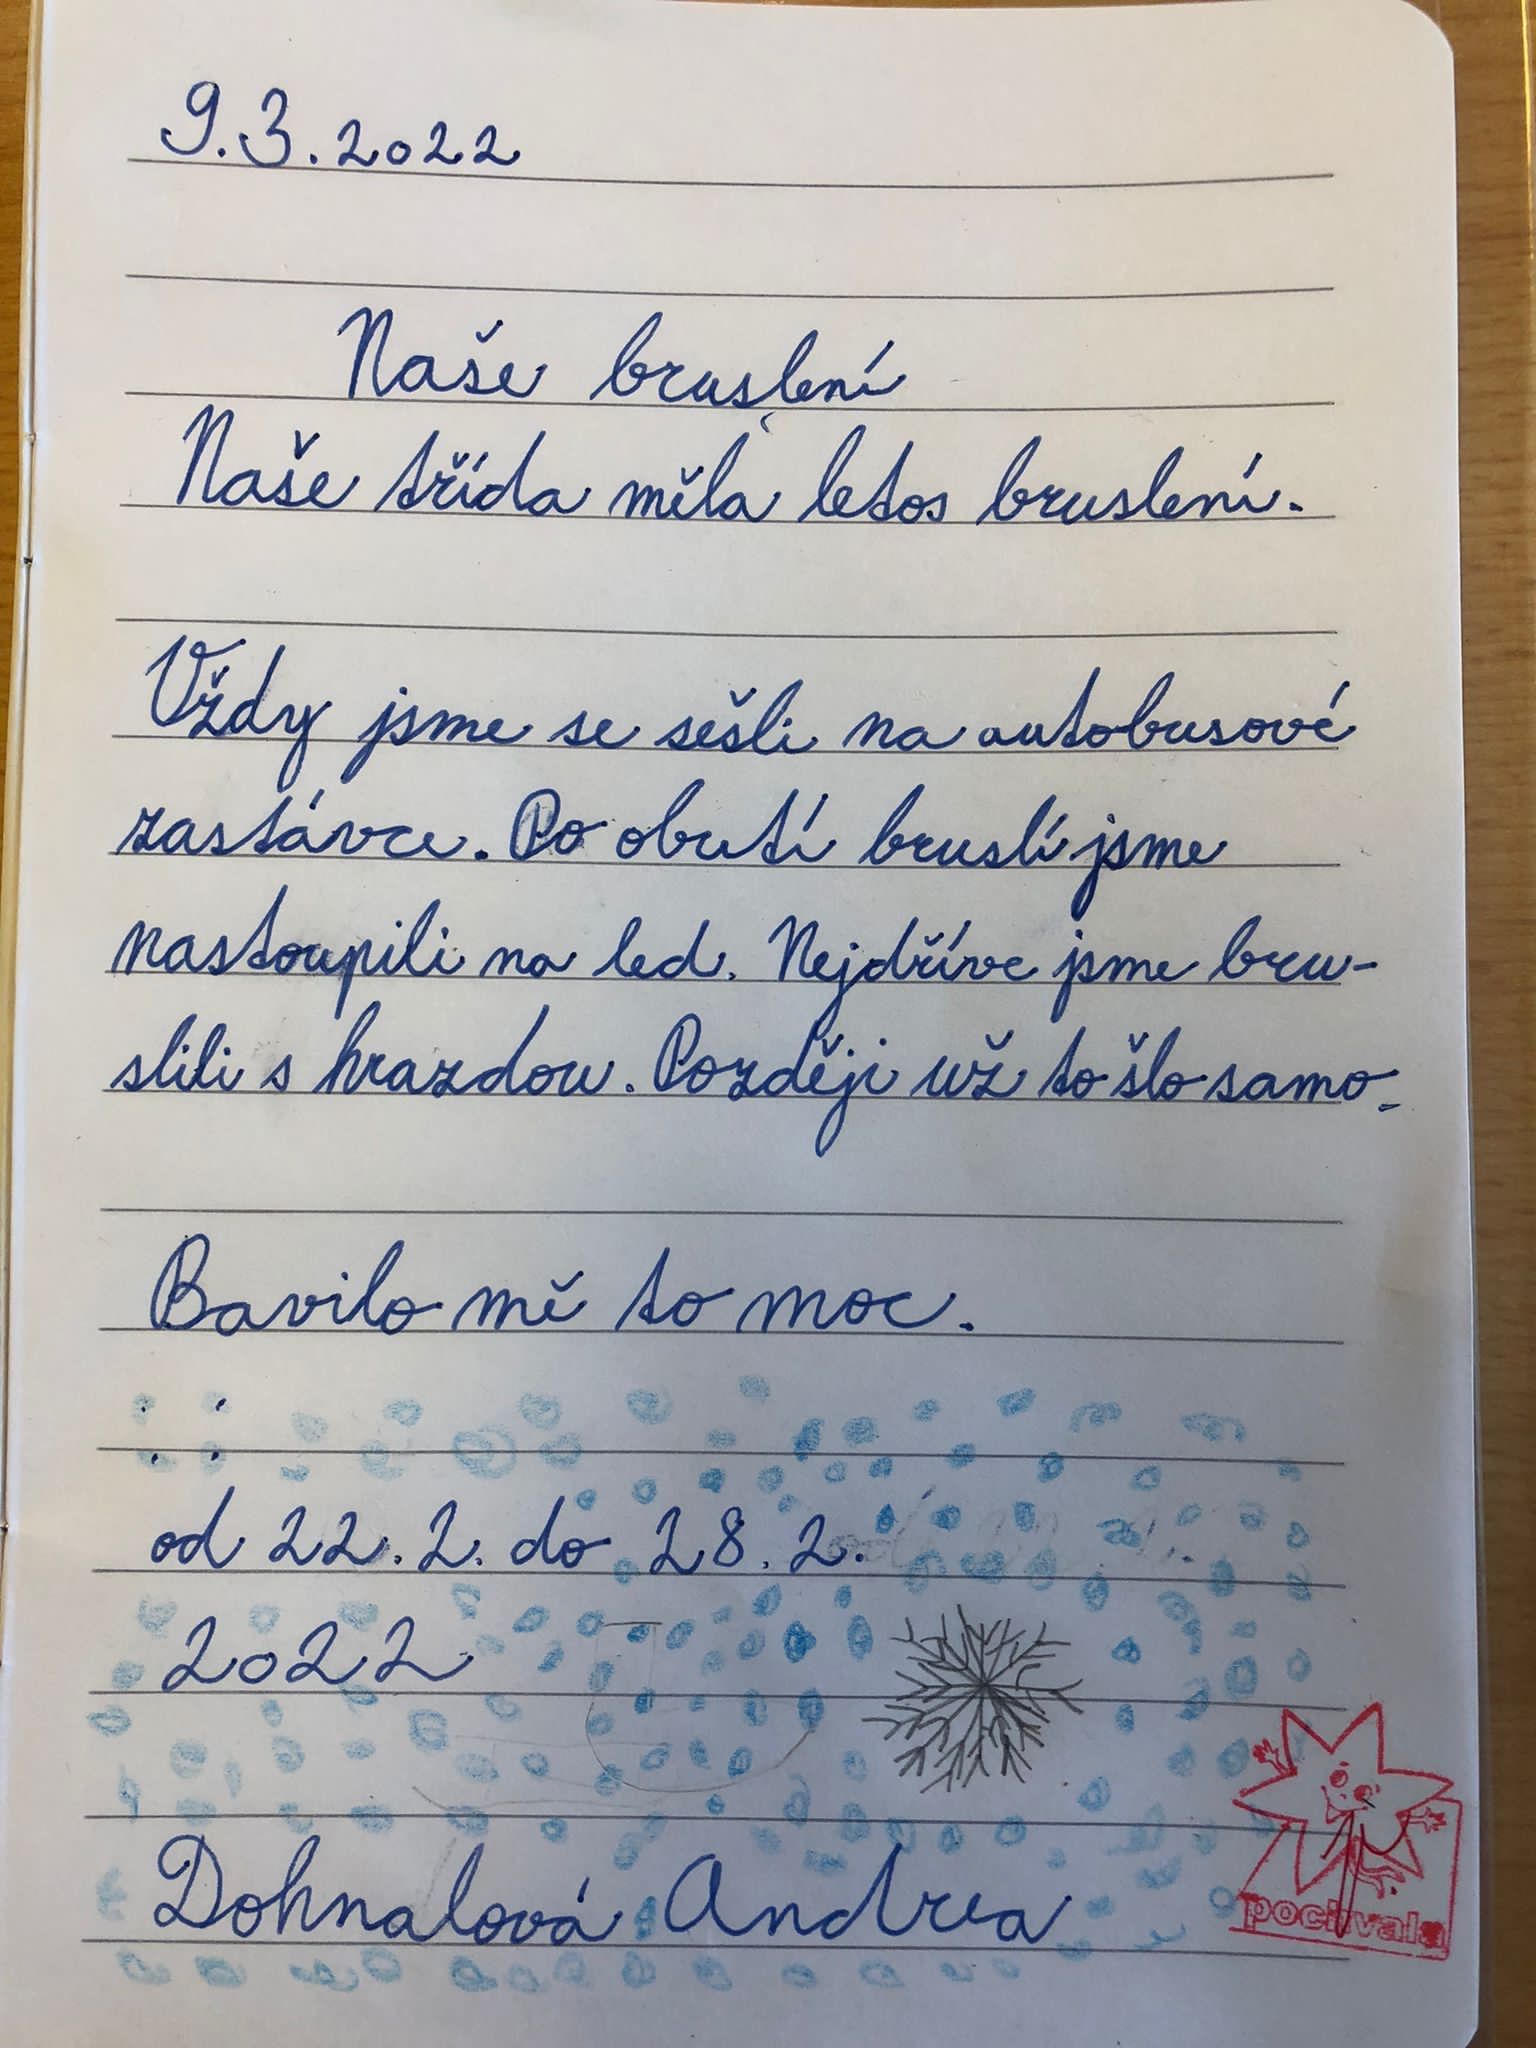 9.3.2022
Naše bruslení
Naše třída měla letos bruslení.
Vždy jsme se sešli na autobusové
zastávce. Po obutí bruslí jsme
nastoupili na led. Nejdříve jsme bru-
slili s hrazdou. Později už to šlo samo.
Bavilo mě to moc.
od 22.2. do 28.2.
2022
Dohnalová Andrea
pochvala